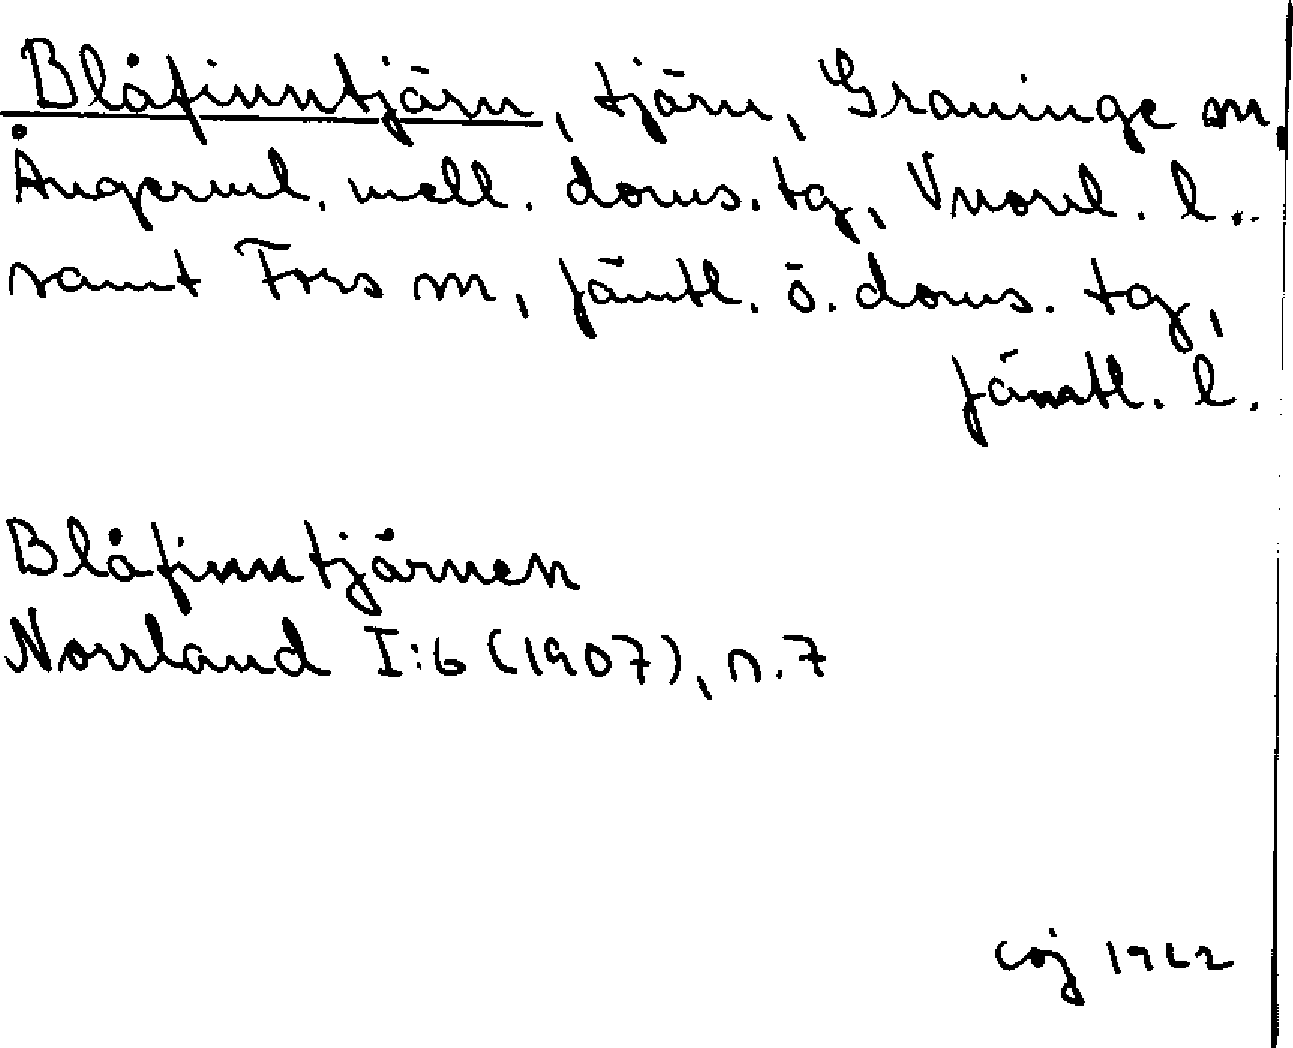 Blåfinntjärn, tjärn, Graninge sn,
Ångerml. mell. doms. tg, Vnorrl. l.
samt Fors sn, Jämtl. ö. doms. tg,
Jämtl. l.
Blåfinntjärnen
Norrland I:6 (1907), s. 7
1962